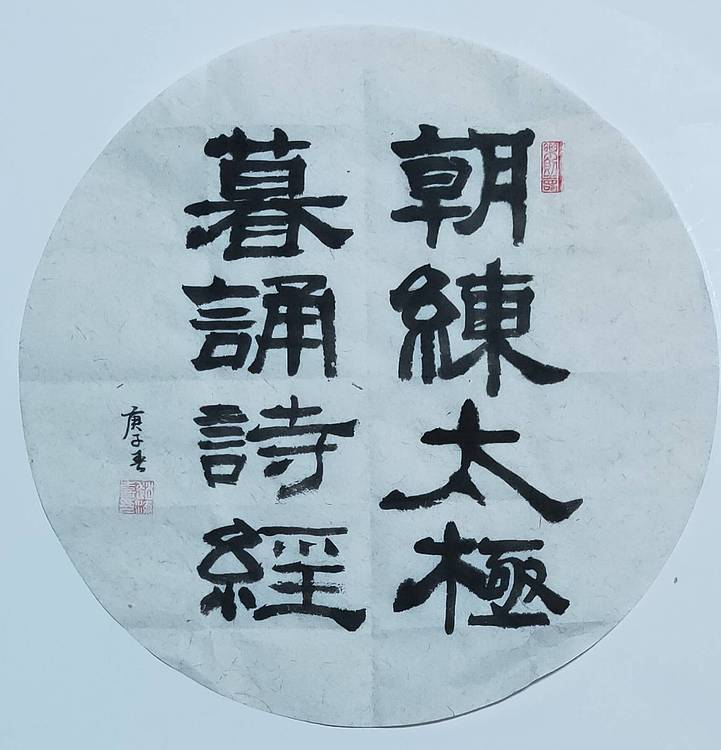 朝練太極
暮誦詩經
庚子春